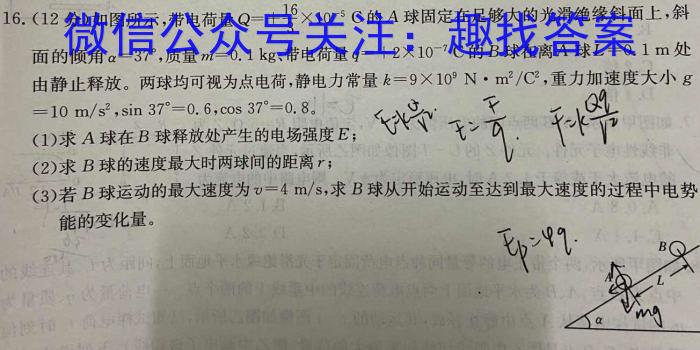 16.(12分)如图所示,带电荷量Q=+16/ ×10⁻⁵ C的A球固定在足够大的光滑绝缘斜面上,斜
微信公众号关注:趣找答案
面的倾角α=37°,质量m=0.1 kg、带电荷量q=+2×10⁻⁷C的B球在离A球L=0.1 m处
由静止释放。两球均可视为点电荷,静电力常量k=9×10⁹ N·m²/C²,重力加速度大小g
=10 m/s²,sin 37°=0.6,cos 37°=0.8。
(1)求A球在B球释放处产生的电场强度E;
(2)求B球的速度最大时两球间的距离r;
(3)若B球运动的最大速度为v=4 m/s,求B球从开始运动至达到最大速度的过程中电势
能的变化量。
E=F/q
F=kQq/r²
Ep=φq.
B
A
L
α
mg